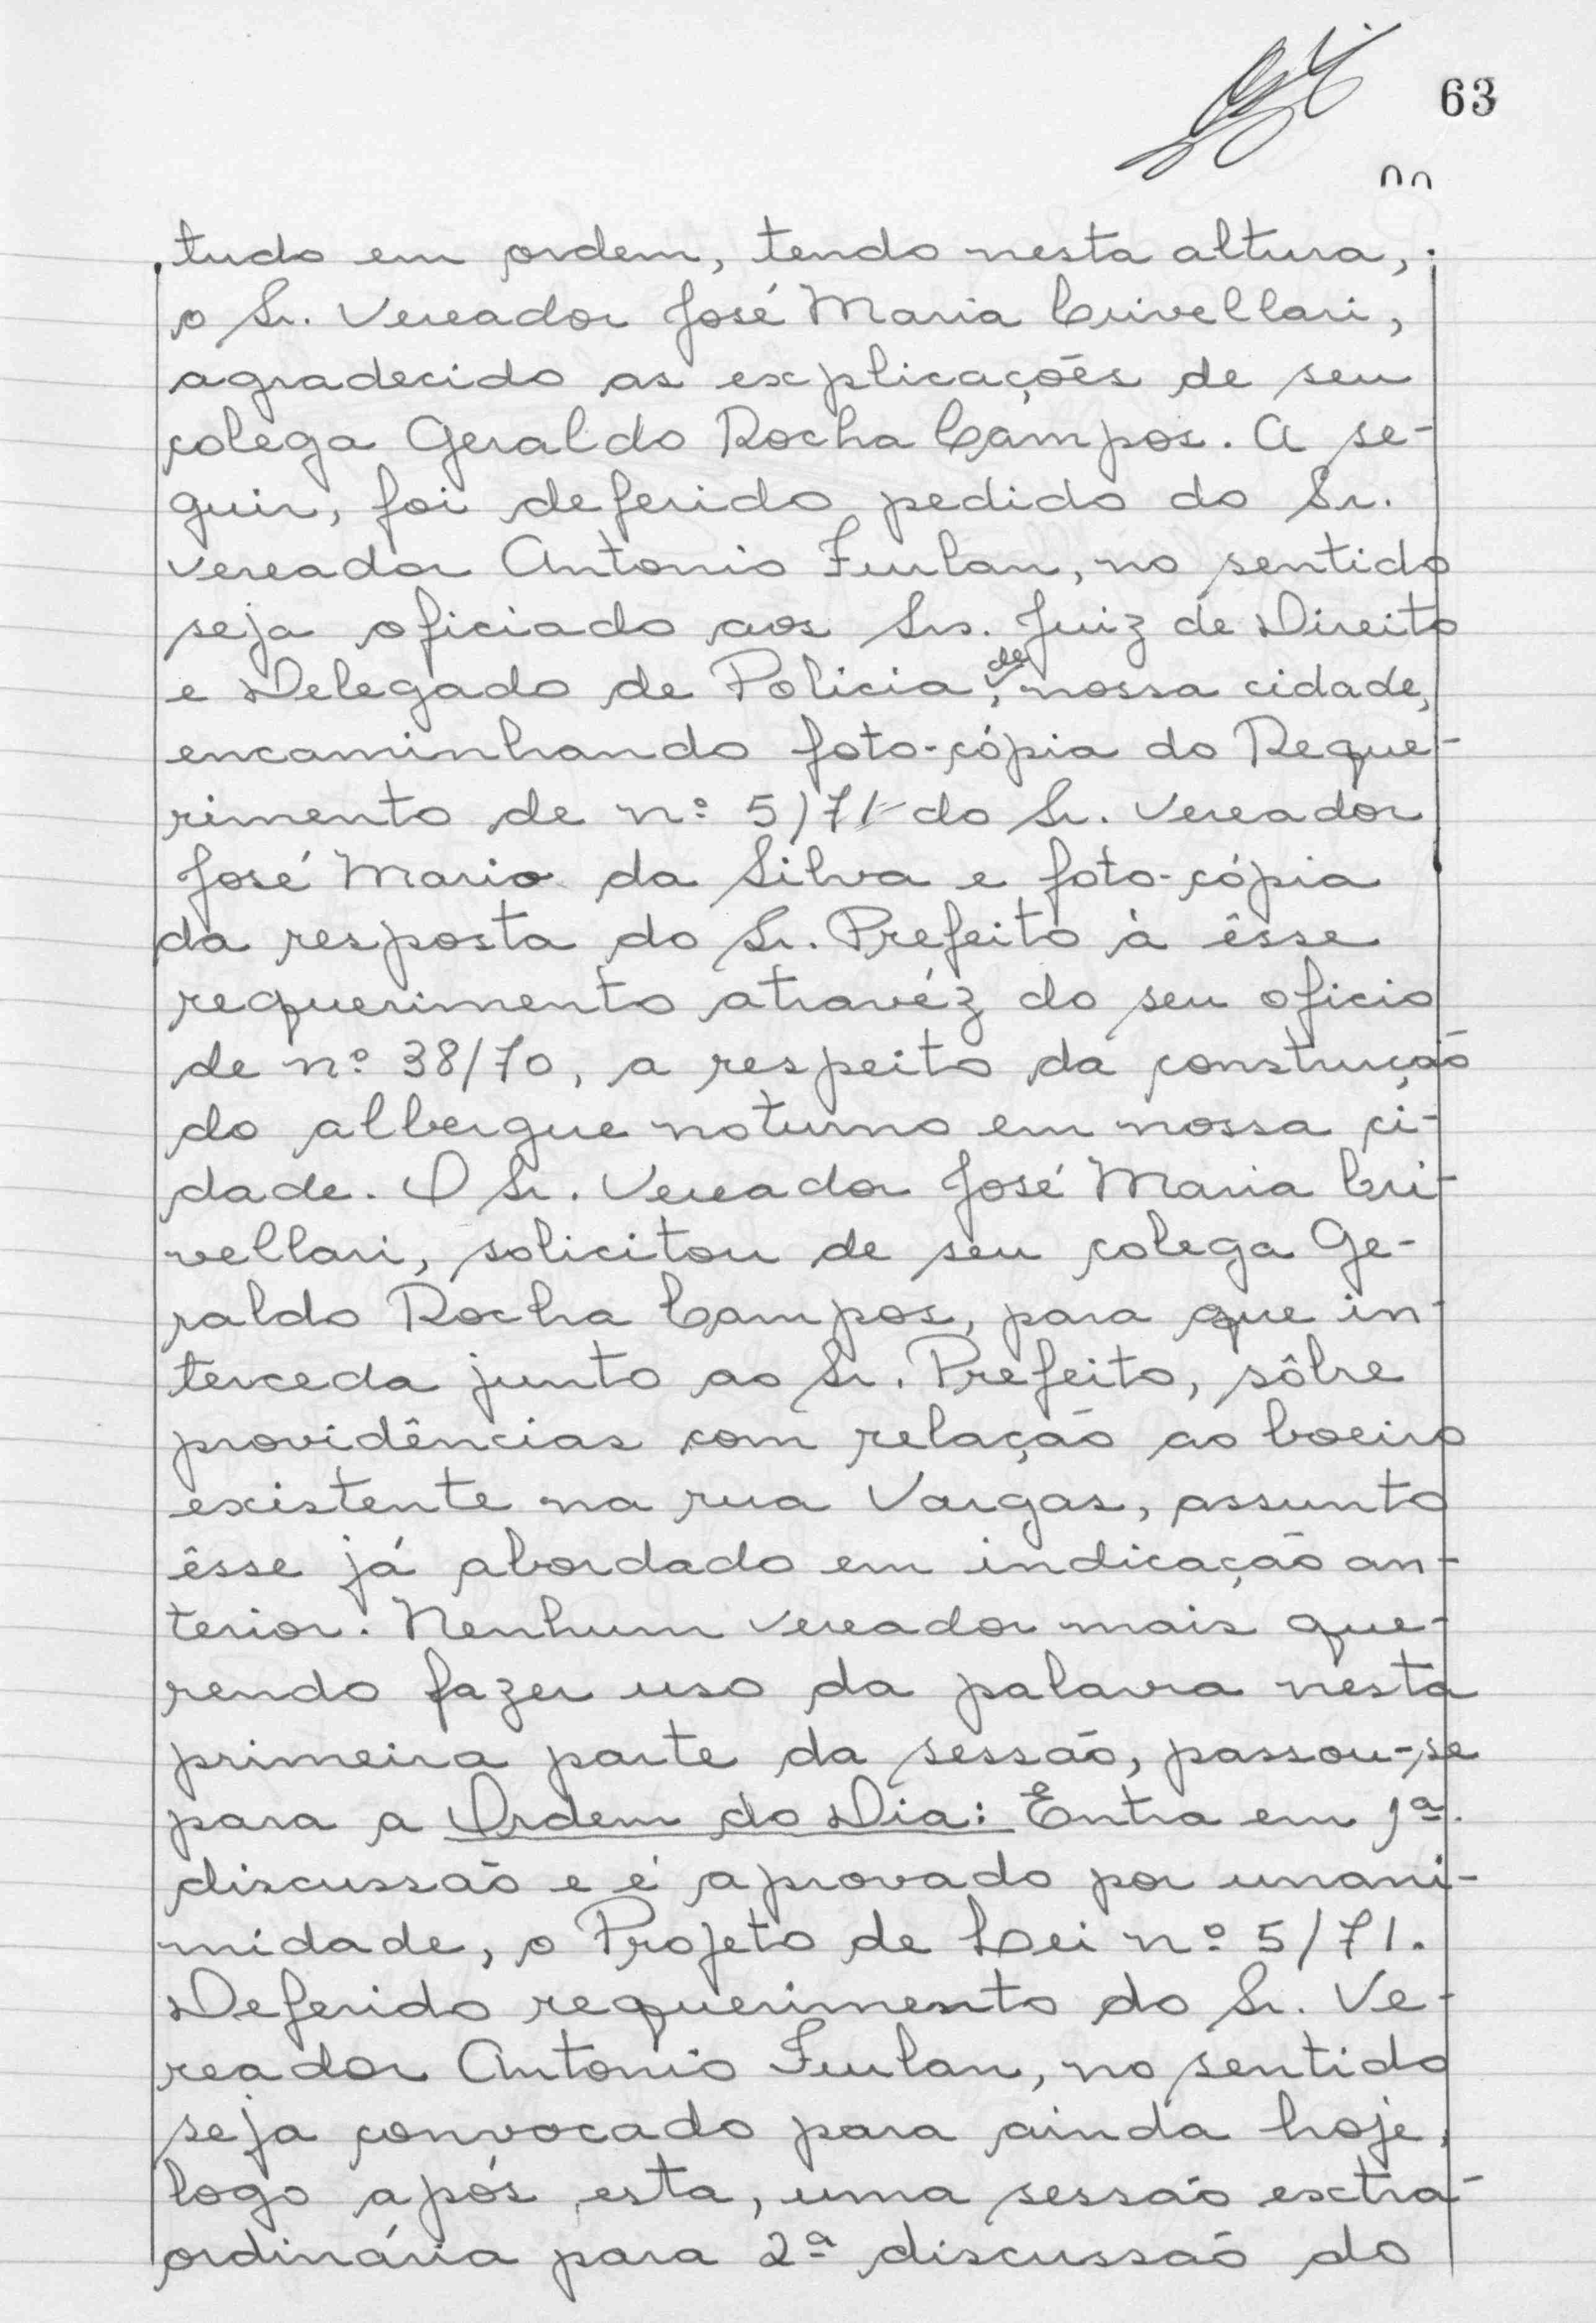 63
tudo em ordem, tendo nesta altura,
o Sr. Vereador José Maria Crivellari,
agradecido as explicações de seu
colega Geraldo Rocha Campos. A se-
guir, foi deferido pedido do Sr.
Vereador Antonio Furlan, no sentido
seja oficiado aos Srs. Juiz de Direito
e Delegado de Policia, de nossa cidade,
encaminhando foto-cópia do Reque-
rimento de nº 5/71 do Sr. Vereador
José Mario da Silva e foto-cópia
da resposta do Sr. Prefeito à êsse
requerimento atravéz do seu oficio
de nº 38/70, a respeito da construção
do albergue noturno em nossa ci-
dade. O Sr. Vereador José Maria Cri-
vellari, solicitou de seu colega Ge-
raldo Rocha Campos, para que in-
terceda junto ao Sr. Prefeito, sôbre
providências com relação ao boeiro
existente na rua Vargas, assunto
êsse já abordado em indicação an-
terior. Nenhum vereador mais que-
rendo fazer uso da palavra nesta
primeira parte da sessão, passou-se
para a Ordem do Dia: Entra em 1ª.
discussão e é aprovado por unani-
midade, o Projeto de Lei nº 5/71.
Deferido requerimento do Sr. Ve-
reador Antonio Furlan, no sentido
seja convocado para ainda hoje,
logo após esta, uma sessão extra-
ordinária para 2ª discussão do